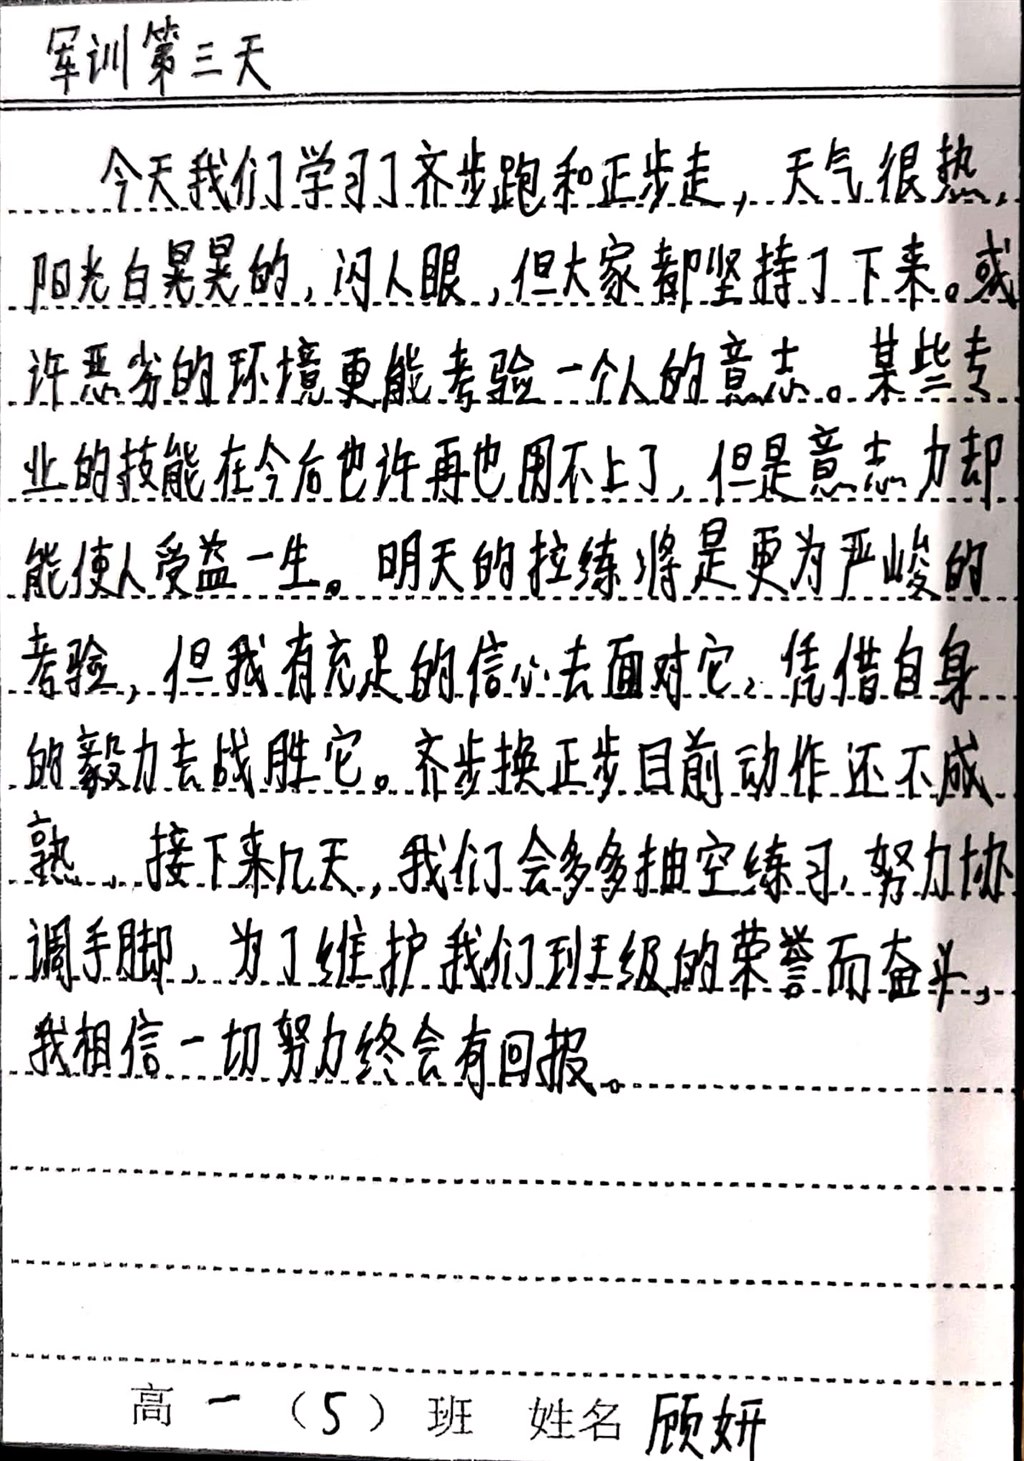 军训第三天
今天我们学习了齐步跑和正步走，天气很热，
阳光白晃晃的，闪人眼，但大家都坚持了下来。或
许恶劣的环境更能考验一个人的意志。某些专
业的技能在今后也许再也用不上了，但是意志力却
能使人受益一生。明天的拉练将是更为严峻的
考验，但我有充足的信心去面对它，凭借自身
的毅力去战胜它。齐步换正步目前动作还不成
熟，接下来几天，我们会多多抽空练习，努力协
调手脚，为了维护我们班级的荣誉而奋斗，
我相信一切努力终会有回报。
高一（5）班 姓名 顾妍